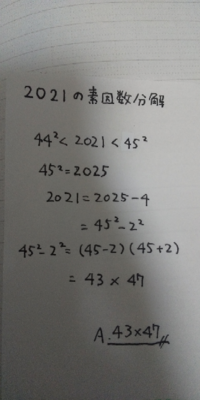 2021の素因数分解
44²<2021<45²
45²=2025
2021=2025-4
=45²-2²
45²-2²=(45-2)(45+2)
=43×47
A.43×47